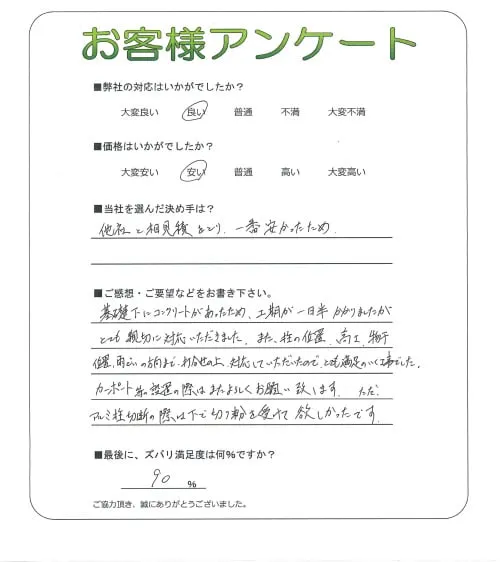 お客様アンケート
■弊社の対応はいかがでしたか？
大変良い 良い 普通 不満 大変不満
■価格はいかがでしたか？
大変安い 安い 普通 高い 大変高い
■当社を選んだ決め手は？
他社と相見積をとり、一番安かったため.
■ご感想・ご要望などをお書き下さい。
基礎下にコンクリートがあったため、工期が一日半かかりましたが
とても親切に対応いただきました。また、柱の位置、高さ、物干
位置、雨どいの方向まで、打合せの上、対応していただいたので、とても満足のいく工事でした。
カーポート等設置の際はまたよろしくお願い致します。ただ、
アルミ柱切断の際は下で切り粉を受けて欲しかったです。
■最後に、ズバリ満足度は何%ですか？
90 %
ご協力頂き、誠にありがとうございました。